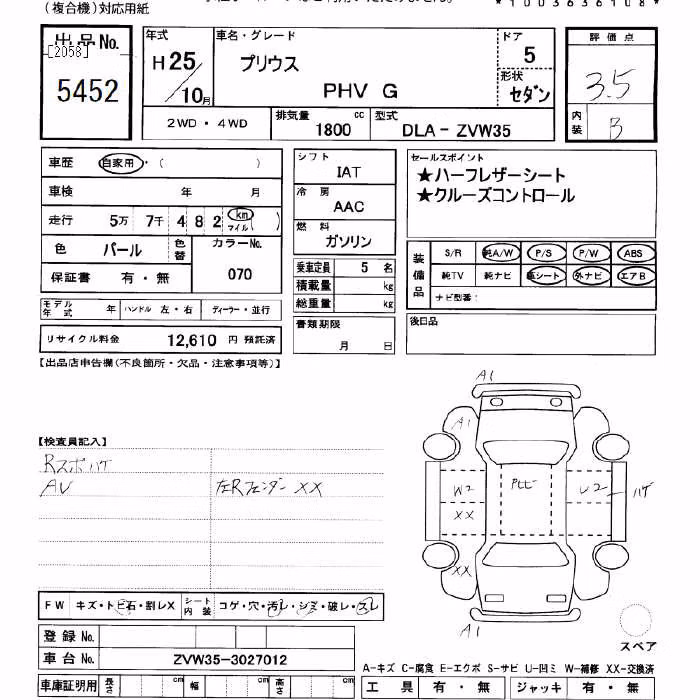 (複合機)対応用紙
*1003636108*
出品No.
[2058]
5452
年式
H25/10月
車名・グレード
プリウス
PHV G
ドア
5
形状
セダン
評価点
3.5
内装
B
2WD・4WD
排気量
1800 cc
型式
DLA-ZVW35
車歴 自家用・( )
車検 年 月
走行 5万 7千 4 8 2 km マイル( )
色 パール 色替 カラーNo.
保証書 有・無 070
シフト
IAT
冷房
AAC
燃料
ガソリン
乗車定員 5 名
積載量 kg
総重量 kg
セールスポイント
★ハーフレザーシート
★クルーズコントロール
装備品
S/R 純A/W P/S P/W ABS
純TV 純ナビ 革シート 外ナビ エアB
ナビ型番:
モデル年式 年 ハンドル 左・右 ディーラー・並行
リサイクル料金 12,610 円 預託済
書類期限
月 日
後日品
【出品店申告欄(不良箇所・欠品・注意事項等)】
【検査員記入】
Rスポハゲ
AV 左Rフェンダー XX
A1
A1
W2
XX
XX
U2
ハゲ
A1
FW キズ・トビ石・割レX シート内装 コゲ・穴・汚レ・シミ・破レ・スレ
登録No.
車台No. ZVW35-3027012
車庫証明用 長さ cm 幅 cm 高さ cm
スペア
A-キズ C-腐食 E-エクボ S-サビ U-凹ミ W-補修 XX-交換済
工具 有・無 ジャッキ 有・無